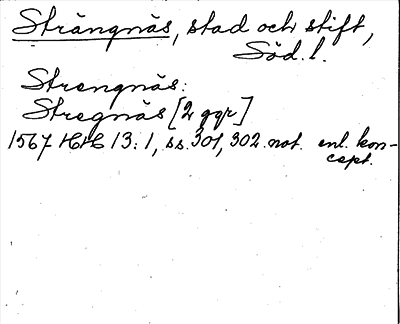 Strängnäs, stad och stift,
Söd. l.
Strengnäs:
Stregnäs [2 ggr]
1567 HH 13:1, ss. 301, 302 not. enl. kon-
cept.